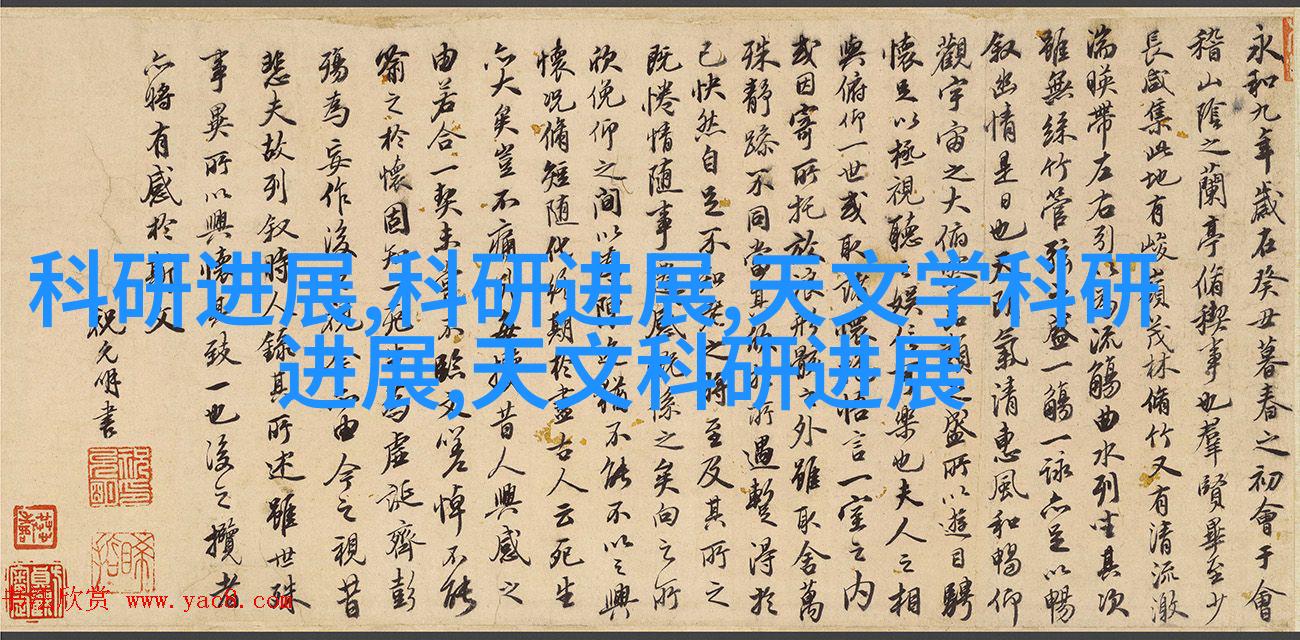 科研进展,科研进展,天文学科研
进展,天文科研进展
永和九年歲在癸丑暮春之初會于會
稽山陰之蘭亭脩稧事也羣賢畢至少
長咸集此地有峻嶺茂林脩竹又有清流激
湍暎帶左右引以為流觴曲水列坐其次
雖無絲竹管弦之盛一觴一詠亦足以暢
叙幽情是日也天朗氣清惠風和暢仰
觀宇宙之大俯察品類之盛所以遊目騁
懷足以極視聽之娛信可樂也夫人之相
與俯仰一世或取諸懷抱悟言一室之內
或因寄所托放浪形骸之外雖取舍萬
殊靜躁不同當其欣於所遇暫得於
己快然自足不知老之將至及其所之
既惓情隨事遷感慨係之矣向之所
欣俛仰之間以為陳迹猶不能不以之興
懷況脩短隨化終期於盡古人云死生
亦大矣豈不痛哉每攬昔人興感之
由若合一契未嘗不臨文嗟悼不能
喻之於懷固知一死生為虛誕齊彭
殤為妄作後之視今亦由今之視昔
悲夫故列叙時人錄其所述雖世殊
事異所以興懷其致一也後之攬者
亦將有感於斯文
祝允明書
欣赏 www.yac8.com